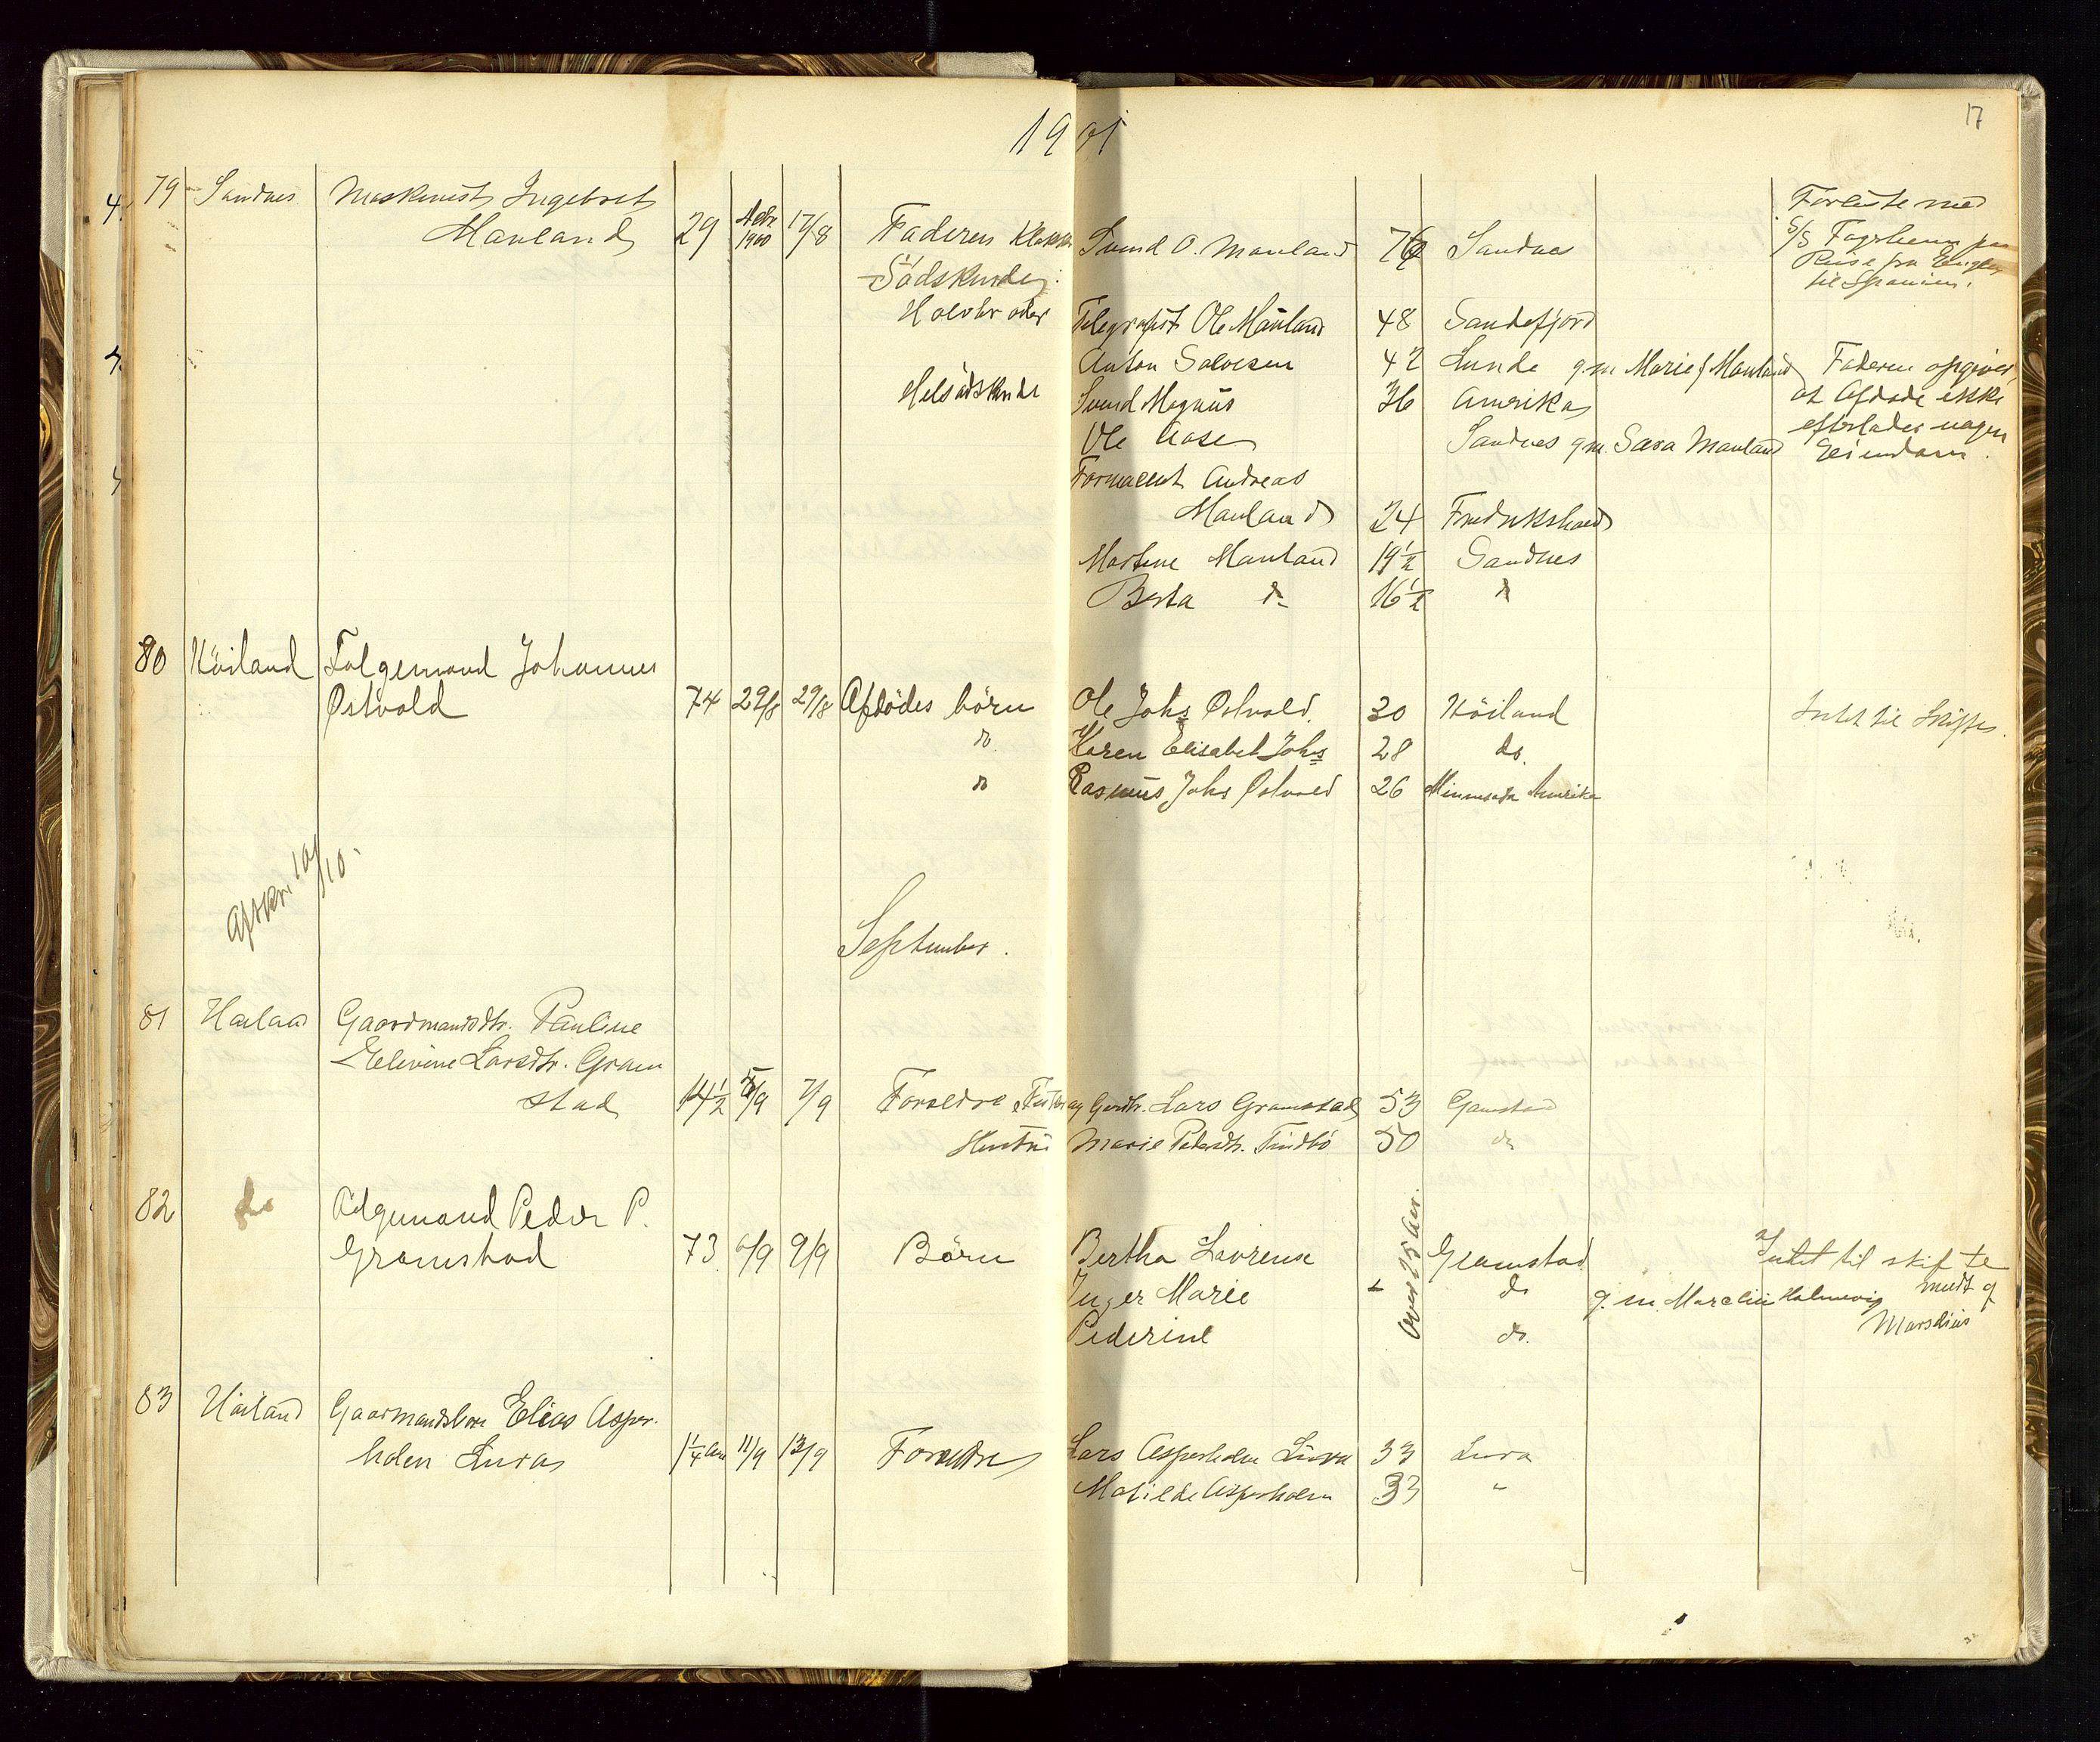 1901
17
79 Sandnes Maskinist Ingebret
Mauland 29 Novbr 1900 17/8 Faderen Svend O. Mauland 76 Sandnes
Forliste med
S/S Fagerheim paa
Reise fra England
til Spanien.
Södskende:
Halvbroder Telegrafist Ole Mauland 48 Sandefjord
Anton Salvesen 42 Lunde g.m. Marie f Mauland
Helsödskende Svend Magnus 36 Amerika
Ole Aase Sandnes g.m. Sara Mauland
Faderen opgiver,
at Afdöde ikke
efterlader nogen
Eiendom.
Formand Andreas
Mauland 24 Fredrikshald
Martine Mauland 19½ Sandnes
Berta do 16½ do
80 Höiland Folgemand Johannes
Ostvold 74 22/8 29/8 Afdödes börn Ole Johs Ostvold. 30 Höiland Intet til Skifte.
do Karen Elisabet Johs 28 do.
do Rasmus Johs Ostvold 26 Minnesota Amerika
Afskr. 10/10.
September.
81 Höiland Gaardmandsdtr. Pauline
Elevine Larsdtr. Gram
stad 14½ 5/9 7/9 Forældre Lars Gramstad 53 Gramstad
Hustru Marie Pedersdtr. Tindbö 50 do
82 do Folgemand Peder P.
Gramstad 73 6/9 9/9 Börn Bertha Laurense Over 25 Aar. Gramstad Intet til skifte
Inger Marie do g.m. Marelius Holmevig
Pederine do.
83 Höiland Gaardmandsbarn Elias Asper-
holen Lura 1¼ Aar 11/9 13/9 Forældre Lars Asperholen Lura 33 Lura
Matilde Asperholen 33 "